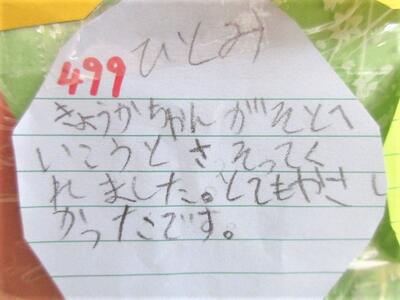 ひとみ
499
きょうかちゃんがそとへ
いこうとさそってく
れました。とてもやさし
かったです。